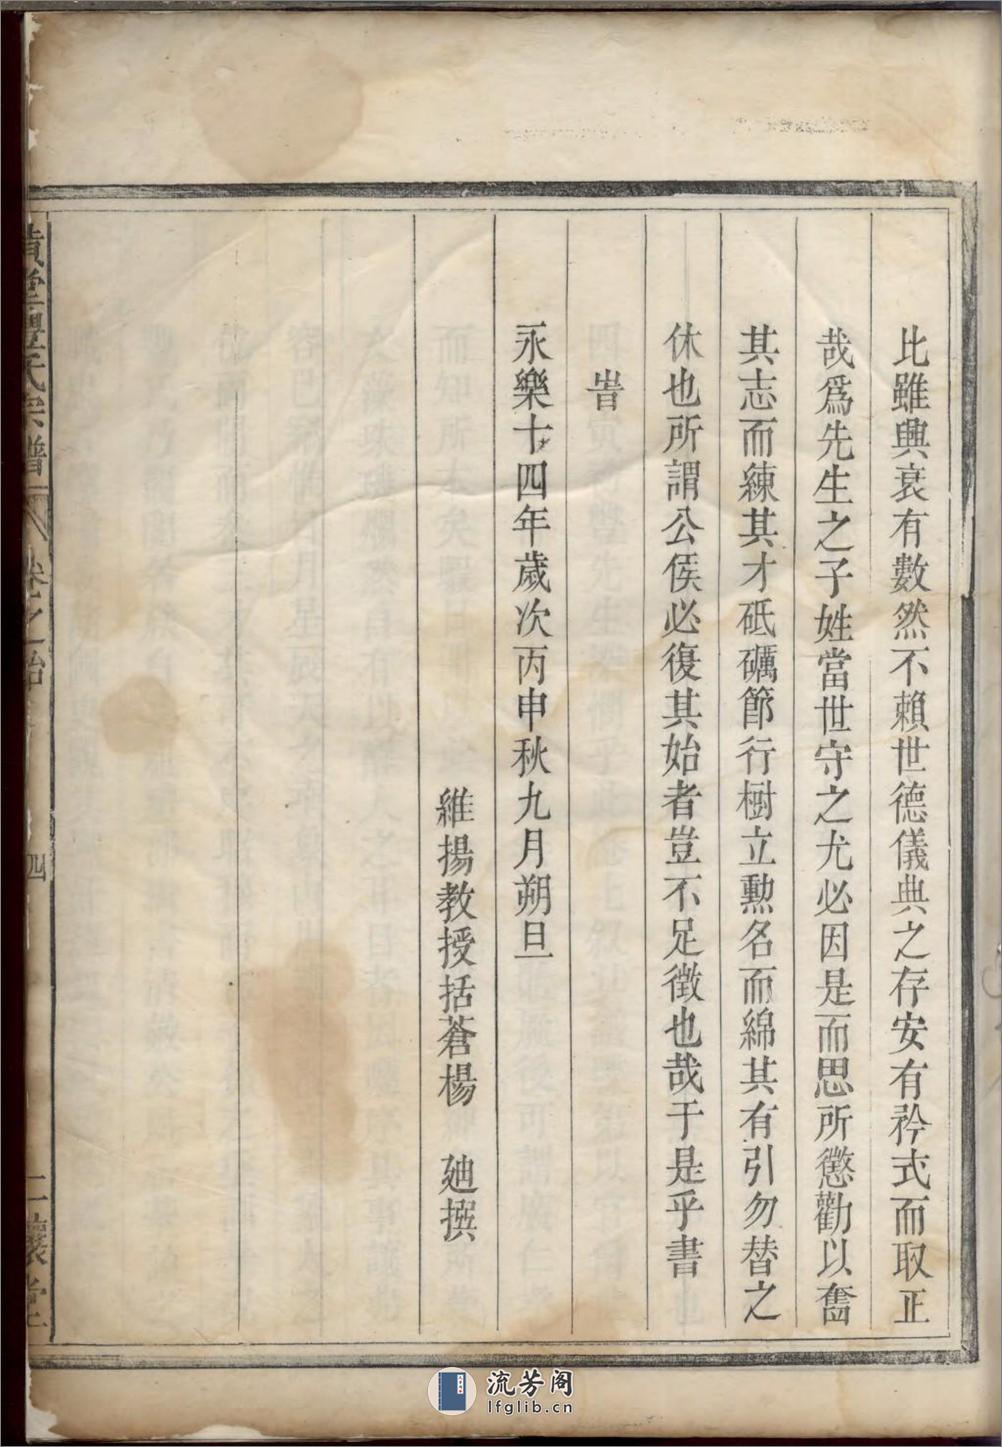 比雖興衰有數然不賴世德儀典之存安有矜式而取正
哉爲先生之子姓當世守之尤必因是而思所懲勸以奮
其志而練其才砥礪節行樹立勲名而綿其有引勿替之
休也所謂公侯必復其始者豈不足徵也哉于是乎書
旹
永樂十四年歲次丙申秋九月朔旦
維揚教授括蒼楊 廸撰
豐氏宗譜 卷之 四 堂
流芳阁
lfglib.cn